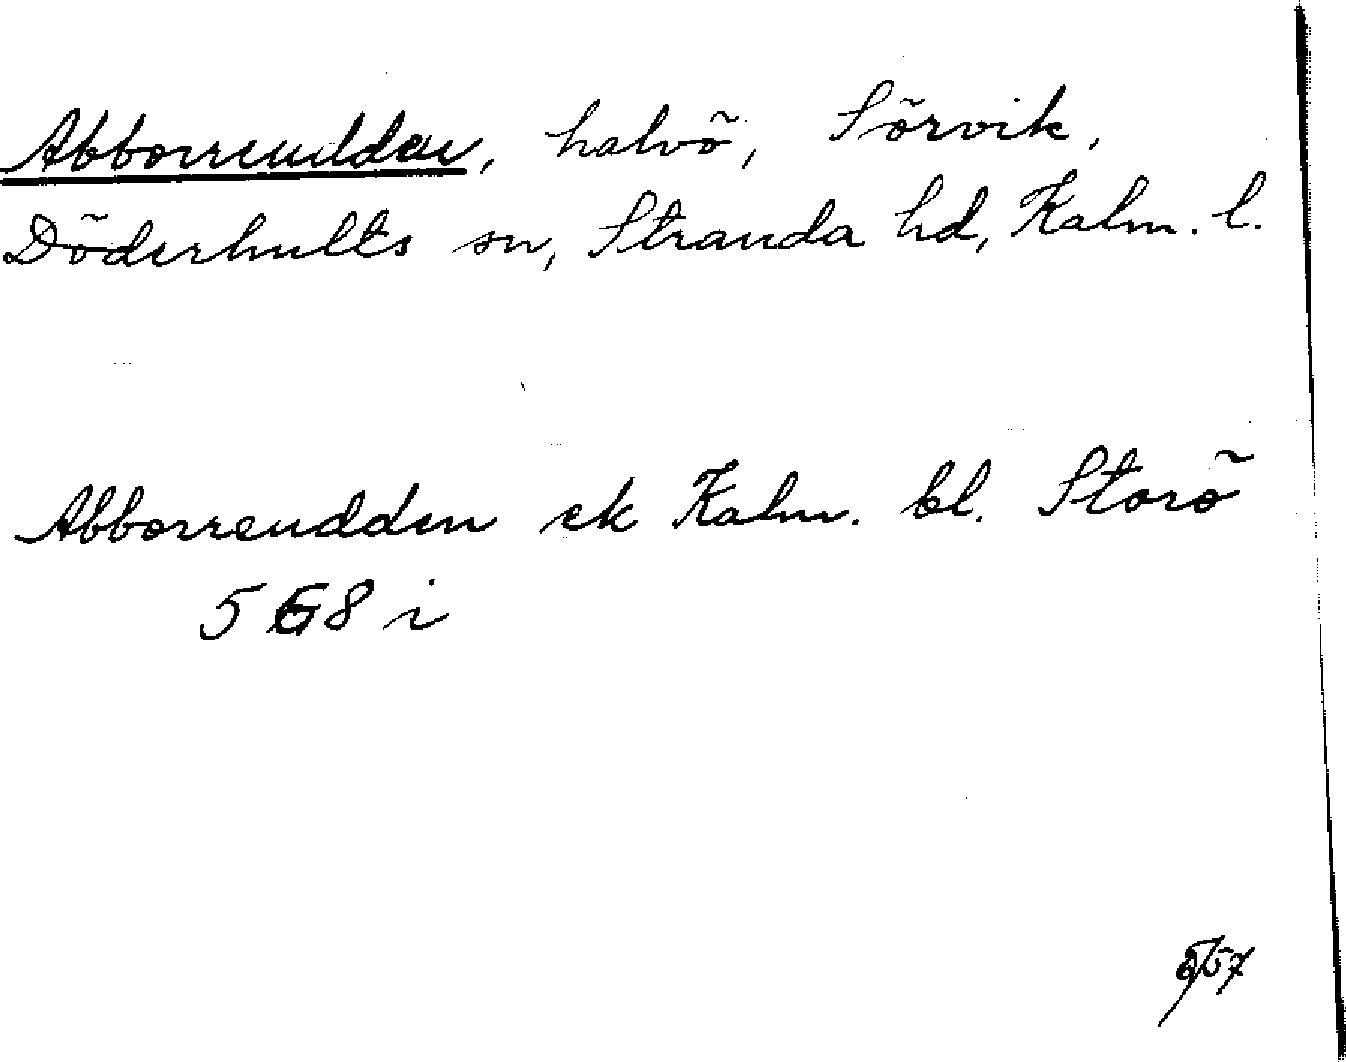 Abborrudden, halvö, Sörvik,
Döderhults sn, Stranda hd, Kalm. l.
Abborreudden ek Kalm. bl. Storö
5 G 8 i